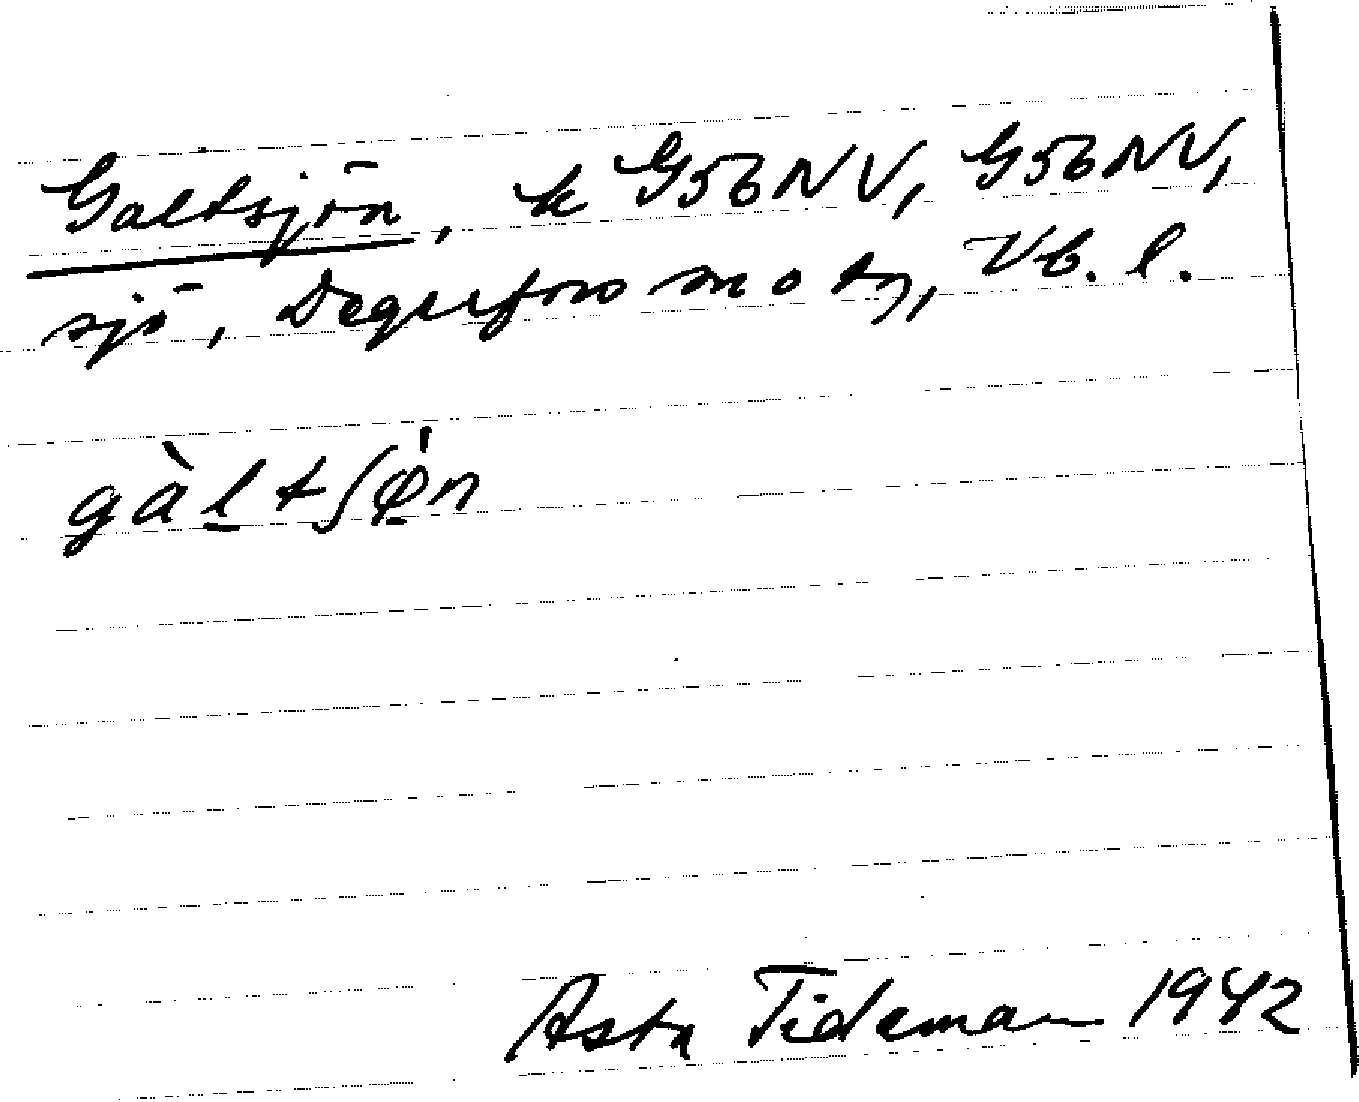 Galtsjön, k G56NV, G56NV,
sjö, Degerfors sn o tg, Vb. l.
gàl̲tʃø̲̍n
Asta Tideman 1942